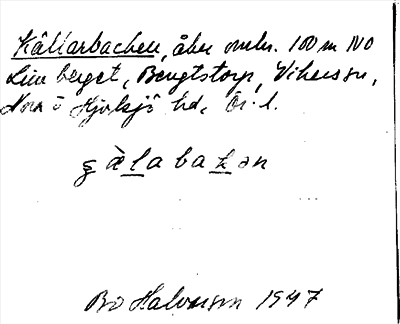 Källarbacken, åker omkr. 100 m NO
Lin berget, Bengtstorp, Vikersvn,
Nora o Hjulsjö hd, Ör. l.
g à l a b a k ə n
Bo Halvarson 1947